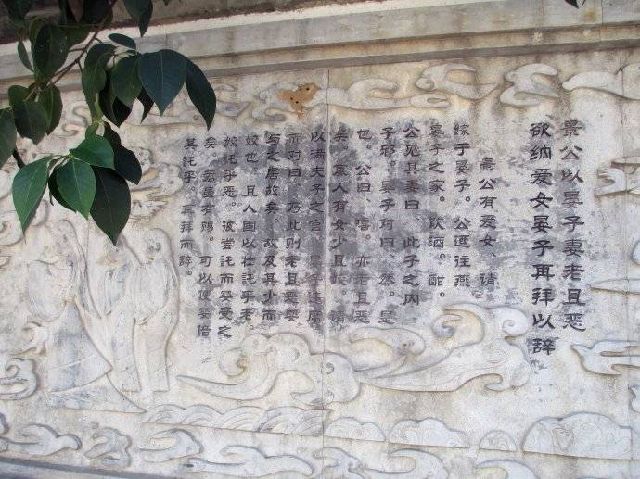 景公以晏子妻老且恶
欲纳爱女晏子再拜以辞
景公有爱女、请
嫁于晏子。公迺往燕
晏子之家。饮酒。酣。
公见其妻曰、此子之内
子邪。晏子对曰、然。是
也。公曰、嘻。亦老且恶
矣。寡人有女少且姣。请
以满夫子之宫。晏子违席
而对曰、乃此则老且恶。婴
与之居故矣。故及其少而
姣也。且人固以壮託乎老
姣託乎恶。彼尝託而婴受之
矣。君虽有赐。可以使婴倍
其託乎。再拜而辞。